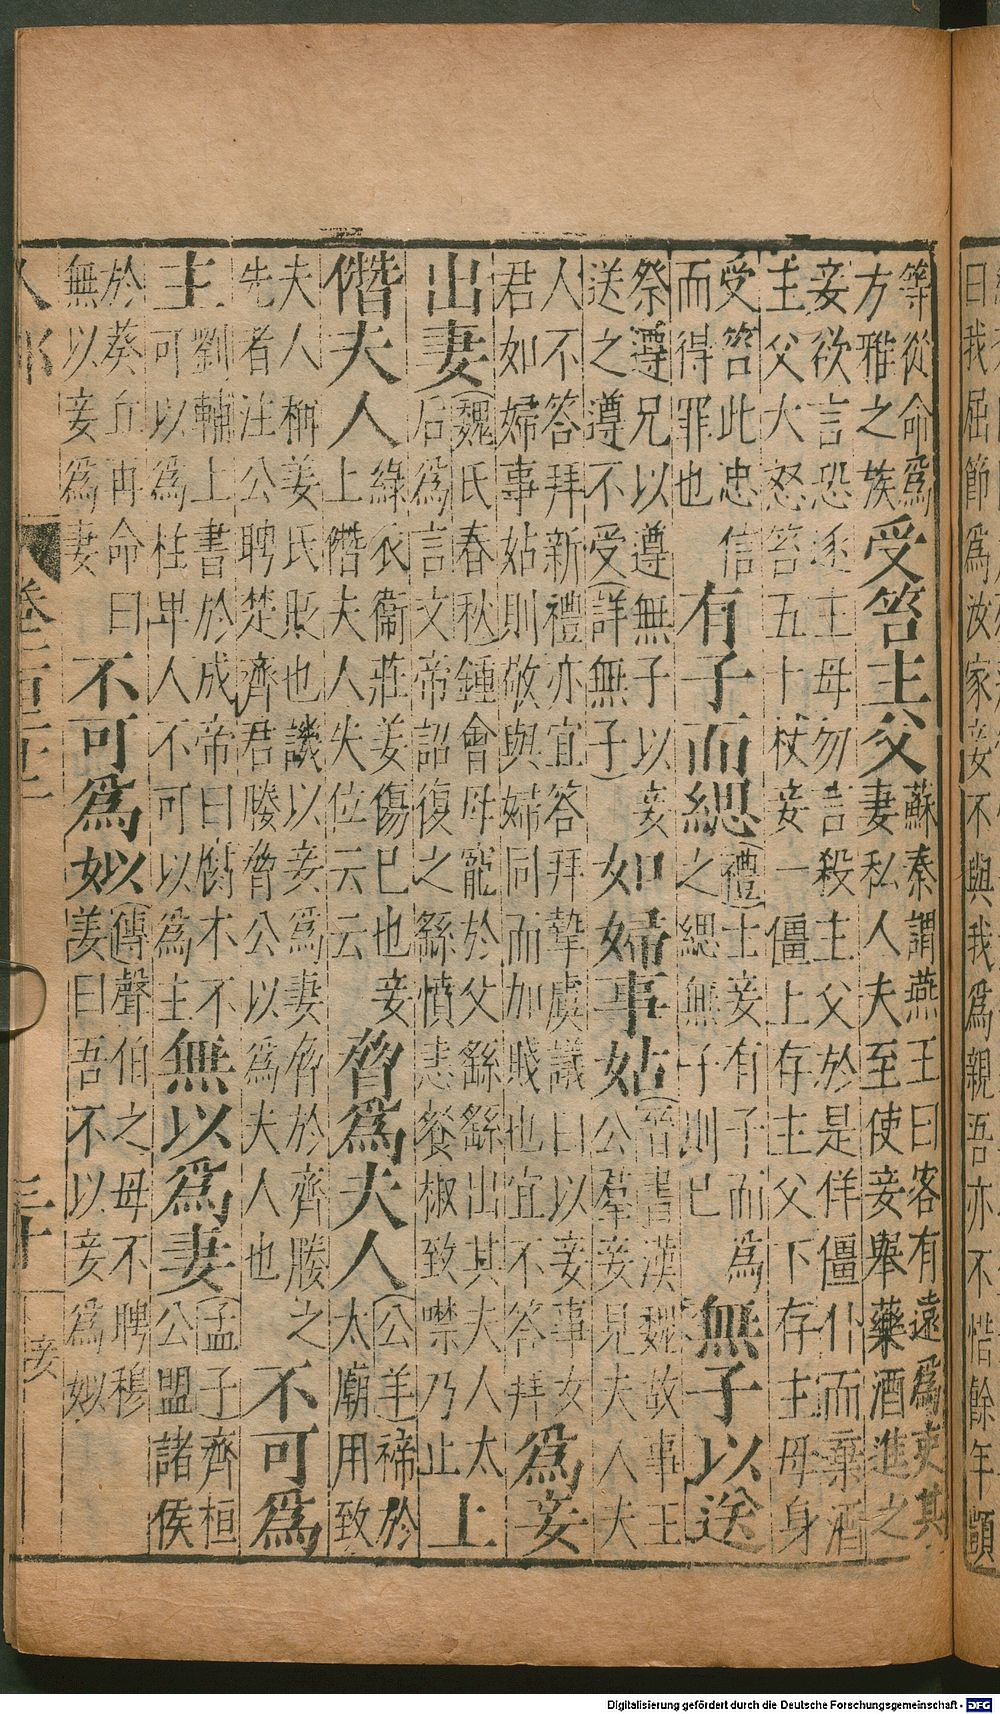 曰我屈節爲汝家妾不與我爲親吾亦不惜餘年顗
等從命爲
方雅之族
受笞主父
蘇秦謂燕王曰客有遠爲吏其
妻私人夫至使妾舉藥酒進之
妾欲言恐逐主母勿言殺主父於是佯僵仆而棄酒
主父大怒笞五十杖妾一僵上存主父下存主母身
受笞此忠信
而得罪也
有子而緦
(禮)士妾有子而爲
之緦無子則已
無子以送
祭遵兄以遵無子以妾
送之遵不受(詳無子)
如婦事姑
(晉書漢魏故事王
公羣妾見夫人夫
人不答拜新禮亦宜答拜摯虞議曰以妾事女
君如婦事姑則敬與婦同而加賤也宜不答拜
爲妾
出妻
(魏氏春秋)鍾會母寵於父繇繇出其夫人太
后爲言文帝詔復之繇憤恚餐椒致噤乃止
上
僭夫人
綠衣衞莊姜傷已也妾
上僭夫人失位云云
脅爲夫人
(公羊)禘於
太廟用致
夫人稱姜氏貶也譏以妾爲妻脅於齊媵之
先者注公聘楚齊君媵脅公以爲夫人也
不可爲
主
劉輔上書於成帝曰腐木不
可以爲柱卑人不可以爲主
無以爲妻
(孟子)齊桓
公盟諸侯
於葵丘再命曰
無以妾爲妻
不可爲姒
(傳)聲伯之母不聘穆
姜曰吾不以妾爲姒
三十
妾
Digitalisierung gefördert durch die Deutsche Forschungsgemeinschaft - DFG